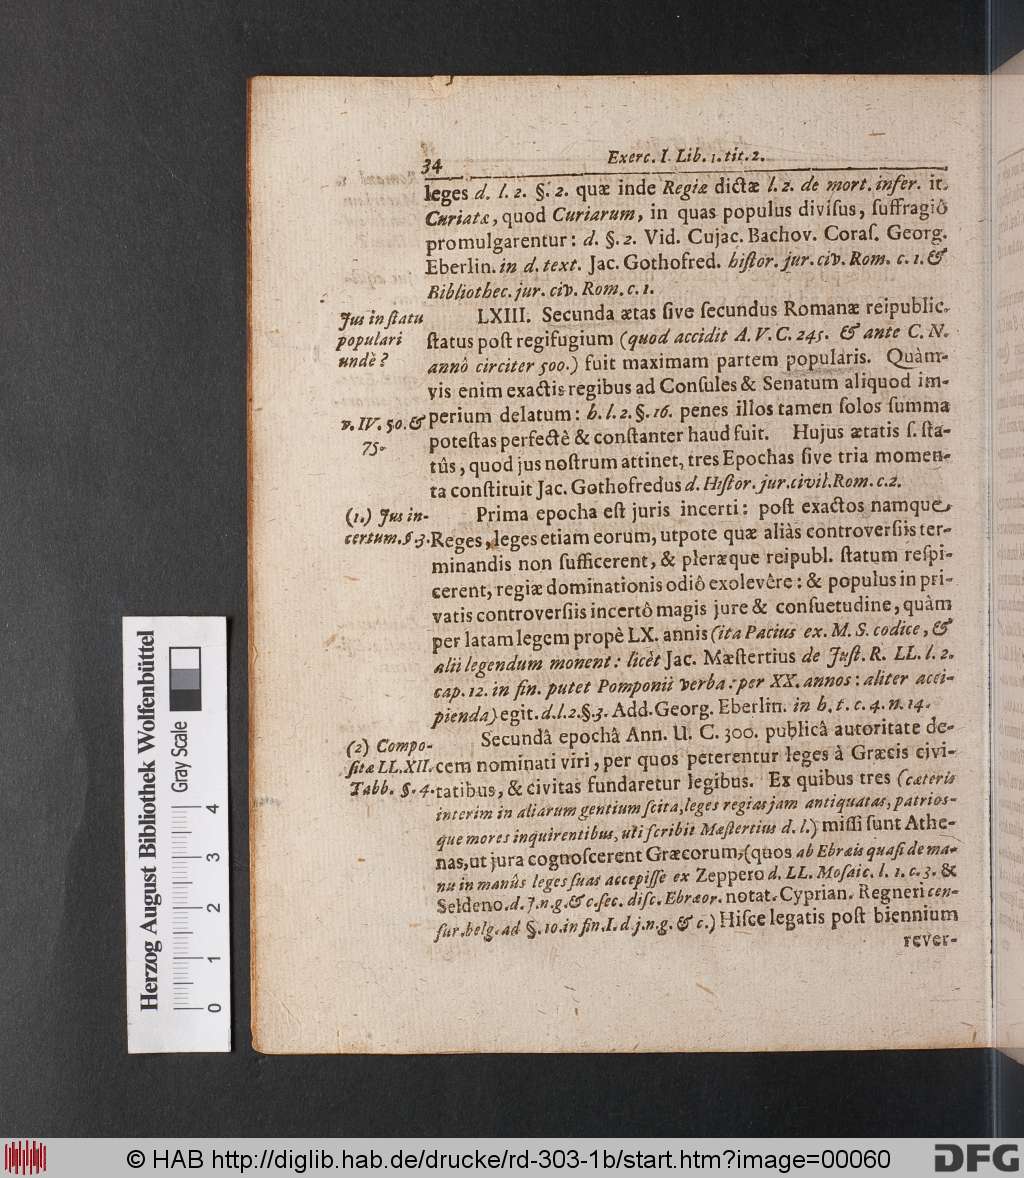 34
Exerc. I. Lib. 1. tit. 2.
leges d. l. 2. §. 2. quæ inde Regiæ dictæ l. 2. de mort. infer. it.
Curiatæ, quod Curiarum, in quas populus diviſus, ſuffragiô
promulgarentur: d. §. 2. Vid. Cujac. Bachov. Coraſ. Georg.
Eberlin. in d. text. Jac. Gothofred. hiſtor. jur. civ. Rom. c. 1. &
Bibliothec. jur. civ. Rom. c. 1.
Jus in ſtatu
populari
undè?
LXIII. Secunda ætas ſive ſecundus Romanæ reipublic.
ſtatus poſt regifugium (quod accidit A. V. C. 245. & ante C. N.
annô circiter 500.) fuit maximam partem popularis. Quàm-
vis enim exactis regibus ad Conſules & Senatum aliquod im-
v. IV. 50. &
75.
perium delatum: h. l. 2. §. 16. penes illos tamen ſolos ſumma
poteſtas perfectè & conſtanter haud fuit. Hujus ætatis ſ. ſta-
tûs, quod jus noſtrum attinet, tres Epochas ſive tria momen-
ta conſtituit Jac. Gothofredus d. Hiſtor. jur. civil. Rom. c. 2.
(1.) Jus in-
certum. § 3.
Prima epocha eſt juris incerti: poſt exactos namque
Reges, leges etiam eorum, utpote quæ aliàs controverſiis ter-
minandis non ſufficerent, & pleræque reipubl. ſtatum reſpi-
cerent, regiæ dominationis odiô exolevêre: & populus in pri-
vatis controverſiis incertô magis jure & conſuetudine, quàm
per latam legem propè LX. annis (ita Pacius ex. M. S. codice, &
alii legendum monent: licèt Jac. Mæſtertius de Juſt. R. LL. l. 2.
cap. 12. in fin. putet Pomponii verba: per XX. annos: aliter acci-
pienda) egit. d. l. 2. §. 3. Add. Georg. Eberlin. in h. t. c. 4. n. 14.
(2) Compo-
ſitæ LL. XII.
Tabb. §. 4.
Secundâ epochâ Ann. U. C. 300. publicâ autoritate de-
cem nominati viri, per quos peterentur leges à Græcis civi-
tatibus, & civitas fundaretur legibus. Ex quibus tres (cæteris
interim in aliarum gentium ſcita, leges regias jam antiquatas, patrios-
que mores inquirentibus, uti ſcribit Mæſtertius d. l.) miſſi ſunt Athe-
nas, ut jura cognoſcerent Græcorum, (quos ab Ebræis quaſi de ma-
nu in manûs leges ſuas accepiſſe ex Zeppero d. LL. Moſaic. l. 1. c. 3. &
Seldeno. d. J. n. g. & c. ſec. diſc. Ebræor. notat. Cyprian. Regneri cen-
ſur. belg. ad §. 10. in fin. I. d. j. n. g. & c.) Hiſce legatis poſt biennium
rever-
Herzog August Bibliothek Wolfenbüttel
Gray Scale
0 1 2 3 4
© HAB http://diglib.hab.de/drucke/rd-303-1b/start.htm?image=00060
DFG